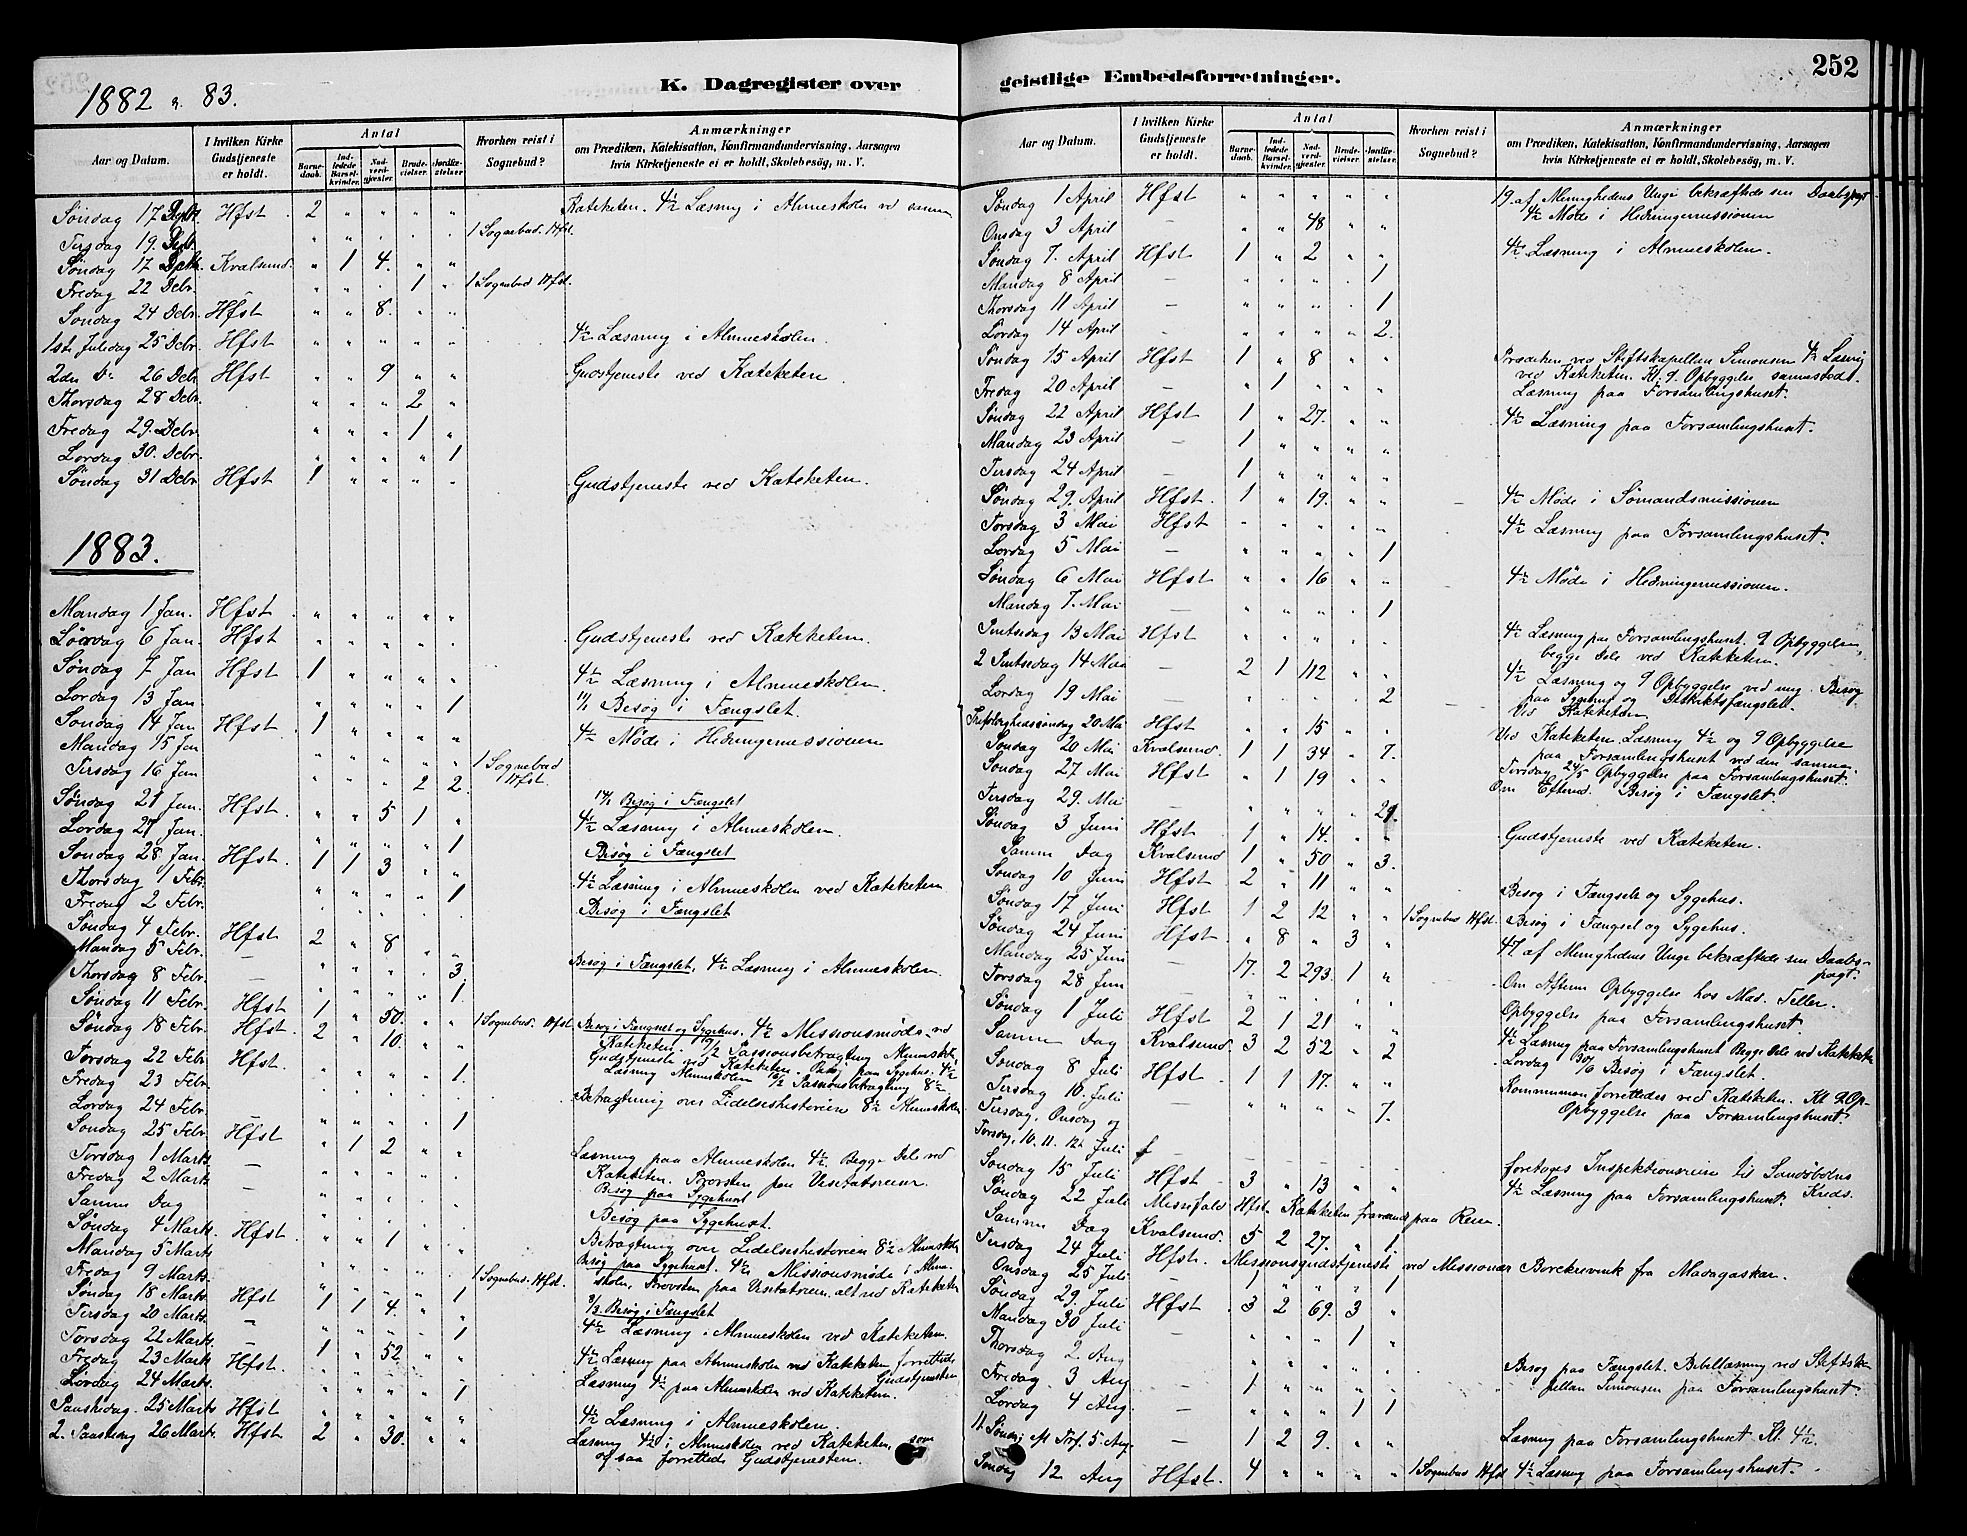 252
1882 & 83.
K. Dagregister over geistlige Embedsforretninger.
Aar og Datum. I hvilken Kirke Gudstjeneste er holdt. Antal Barnedaab. Indledede Barselkvinder. Nadverdgjæster. Brudevielser. Jordfæstelser. Hvorhen reist i Sognebud? Anmærkninger om Prædiken, Katekisation, Konfirmandundervisning, Aarsagen hvis Kirketjeneste ei er holdt, Skolebesøg, m. V.
Søndag 17 Hfst 2 " " " " Katekketen. 4½ Læsning i Almueskolen ved samme
Tirsdag 19. " " . . . 1 Sognebud. Hfst.
Søndag 17 Kvalsund. " 1 4. " "
Fredag 22 Debr. " " . 1 " 1 Sognebud Hfst.
Søndag 24 Debr. Hfst " " 8. " "
1ste Juledag 25 Debr. Hfst " " " " " 4½ Læsning i Almueskolen.
2den Do 26 Debr Hfst " " 9 " " Gudstjeneste ved Kateketen
Thorsdag 28 Debr. " " " 2 "
Fredag 29. Debr. " " " 1 "
Lørdag 30. Debr. " " " " 1
Søndag 31 Debr Hfst 1 " " " " Gudstjeneste ved Kateketen.
1883.
Mandag 1 Jan. Hfst " " " " "
Lørdag 6 Jan. Hfst " " " " . Gudstjeneste ved Kateketen.
Søndag 7 Jan Hfst 1 " " " " 4½ Læsning i Almueskolen.
Lørdag 13 Jan " " " " 1 11/1 Besøg i Fængslet.
Søndag 14 Jan Hfst 1 " " " " 4½ Møde i Hedningemissionen
Mandag 15 Jan " " " " " 1 Sognebud Hfst.
Tirsdag 16 Jan " " " 2 2.
Søndag 21 Jan. Hfst " " 5 1 " Besøg i Fængslet
4½ Læsning i Almueskolen.
Lørdag 27 Jan. " " " " 1 Besøg i Fængslet
Søndag 28 Jan. Hfst 1 1 3 " " 4½ Læsning i Almueskolen ved Kateketen
Thorsdag 1 Febr. " " " " 1
Fredag 2 Febr. Besøg i Fængslet
Søndag 4 Febr. Hfst 2 " 8 " "
Mandag 5 Febr. — " " " " 3. Besøg i Fængslet. 4½ Læsning i Almueskolen.
Thorsdag 8 Febr. " " " " 1.
Søndag 11 Febr. Hfst 1 " 50. " " 1 Sognebud. Hfst Besøg i Fængslet og Sygehus. 4½ Missionsmøde ved
Søndag 18 Febr. Hfst 2 " 10. " " Kateketen. Passionsbetragtning Almueskole
Torsdag 22 Febr. Hfst " " " " " Gudstjeneste ved Kateketen. Besøg paa Sygehus. 4½
Fredag 23 Febr. " " " " 1. Læsning Almueskolen Passionsbetragtning 8½
Lørdag 24 Febr. Betragtning over Lidelseshistorien 8½ Almueskolen
Søndag 25 Febr. Hfst " " " " 1
Torsdag 1 Marts. — " 1 2 " " Læsning paa Almueskolen 4½. Begge Dele ved
Fredag 2 Marts — Kateketen. Provsten paa Visitatsreise.
Samme Dag Besøg paa Sygehuset
Søndag 4 Marts. Hfst. Besøg paa Sygehuset.
Mandag 5 Marts " " 1 " " Betragtning over Lidelseshistorien 8½ Almueskole
Fredag 9 Marts. 1 Sognebud. Hfst. Besøg paa Sygehuset. 4½ Missionsmøde i Almueskolen. Provsten paa Visitatsreise, alt ved Kateketen
Søndag 18 Marts Hfst 1 1 4. " 1 9/3 Besøg i Fængslet
Tirsdag 20 Marts. — " " " " 1 4½ Læsning i Almueskolen ved Kateketen.
Torsdag 22 Marts. — 1 " 52 " "
Fredag 23 Marts Hfst. " " " " " 4½ Læsning paa Almueskolen ved Kateketen forrettede Gudstjenesten
Lørdag 24 Marts. " " " " 1 Læsning 4½ paa Almueskolen ved Kateketen.
Paaskedag. 25 Marts Hfst " " " " " 4½ Læsning i Almueskolen.
2. Paaskedag 26 Marts. Hfst. 2 " 30. " " Læsning 4½ i Almueskolen ved Kateketen, som
ogsaa forrettede Gudstjenesten.
Aar og Datum. I hvilken Kirke Gudstjeneste er holdt. Antal Barnedaab. Indledede Barselkvinder. Nadverdgjæster. Brudevielser. Jordfæstelser. Hvorhen reist i Sognebud? Anmærkninger om Prædiken, Katekisation, Konfirmandundervisning, Aarsagen hvis Kirketjeneste ei er holdt, Skolebesøg, m. V.
Søndag 1 April Hfst " " " " " 19 af Menighedens Unge bekræftede sin Daabspagt
Onsdag 3 April " " 48 " " 4½ Møde i Hedningemissionen
Søndag 7. April Hfst 1 " 2 " " 4½ Læsning i Almueskolen.
Mandag 8 April — " " " " 1
Thorsdag 11 April — " " " " 1
Lørdag 14 April — " " " " 2.
Søndag 15 April Hfst 1 " 8 " " Prædiken ved Stiftskapellan Simonsen 4½ Læsning
ved Kateketen. Kl. 9. Opbyggelse sammesteds.
Fredag 20 April " 1 " " " Læsning paa Forsamlingshuset.
Søndag 22 April Hfst 1 " 27. " " 4½ Læsning paa Forsamlingshuset.
Mandag 23 April — 1 " " " "
Tirsdag 24 April — 1 " " " "
Søndag 29. April Hfst. 1 " 19. " " 4½ Møde i Sømandsmissionen
Torsdag 3 Mai Hfst " " " " " 4½ Læsning paa Forsamlingshuset.
Lørdag 5 Mai — " " " " 1
Søndag 6 Mai Hfst " " 16 " " 4½ Møde i Hedningemissionen.
Mandag 7. Mai — " " " " 1
Pintsedag 13 Mai Hfst " " " " " 4½ Læsning paa Forsamlingshuset. 9 Opbyggelse,
begge Dele ved Kateketen.
2 Pintsedag 14 Mai — 2 1 112 " " 4½ Læsning og 9 Opbyggelse ved mig. Besøg
Lørdag 19 Mai — " " " " 2 paa Sygehus og Distriktsfængslet.
Ved Kateketen
Trefoldighedssøndag 20 Mai Hfst " " 15 " " Ved Kateketen Læsning 4½ og 9 Opbyggelse
Søndag 20 Mai Kvalsund. 1 1 34 " 7. paa Forsamlingshuset ved den samme.
Søndag 27 Mai Hfst " 1 19 " " Torsdag 24/5 Opbyggelse paa Forsamlingshuset.
Tirsdag 29. Mai — " " " " 29. Om Efterm. Besøg i Fængslet.
Søndag 3 Juni Hfst 1 " 14. " " Gudstjeneste ved Kateketen.
Samme Dag Kvalsund 1 " 50 " 3.
Søndag 10 Juni Hfst 2 " 11 " " Besøg i Fængsel og Sygehus.
Søndag 17 Juni Hfst 1 2 12 " " 1 Sognebud Hfst. Besøg i Fængsel og Sygehus.
Søndag 24 Juni Hfst " 8 " 3 " 47 af Menighedens Unge bekræftede sin Daabspagt.
Mandag 25 Juni — 17. 2 293. 1 "
Torsdag 28 Juni — " " " " " Om Afteren Opbyggelse hos Mad. Teller.
Søndag 1 Juli Hfst 2 1 21 " " Opbyggelse paa Forsamlingshuset
Samme Dag Kvalsund. 3 2 52 " 2 4½ Læsning paa Forsamlingshuset Begge Dele ved Kateketen
Lørdag 30/6 Besøg i Fængslet
Søndag 8 Juli Hfst 1 1 17. " " Kommunion forrettedes ved Kateketen. Kl 9 Op-
Opbyggelse paa Forsamlingshuset.
Tirsdag 10. Juli — " " " " 7.
Tirsdag, Onsdag og
Torsdag, 10. 11. 12. Juli foretoges Inspektionsreise til Kreds.
Søndag 15 Juli Hfst 3 " 13 " " 4½ Læsning paa Forsamlingshuset.
Søndag 22 Juli Messefald Hfst. Kateketen fraværende paa Reise.
Samme Dag Kvalsund. 5 2 27. " 1
Tirsdag 24 Juli Hfst. Missionsgudstjeneste ved Missionær Borckrevink fra Madagaskar.
Onsdag 25 Juli " " " " 1
Søndag 29. Juli Hfst 3 2 69. 3 "
Mandag 30 Juli — " " " 1 "
Thorsdag 2 Aug " " " " " Besøg paa Fængslet. Bibellæsning ved Stiftska-
Fredag 3 Aug — 1 " " " " pellan Simonsen paa Forsamlingshuset
Lørdag 4 Aug. — " " " 1 1
11 Søndag eft Tref. 5 Aug. — 1 2 9. " " Læsning paa Forsamlingshuset Kl. 4½.
Søndag 12 Aug Hfst. 4 " " " " 1 Sognebud Hfst 4½ Læsning paa Forsamlingshuset.